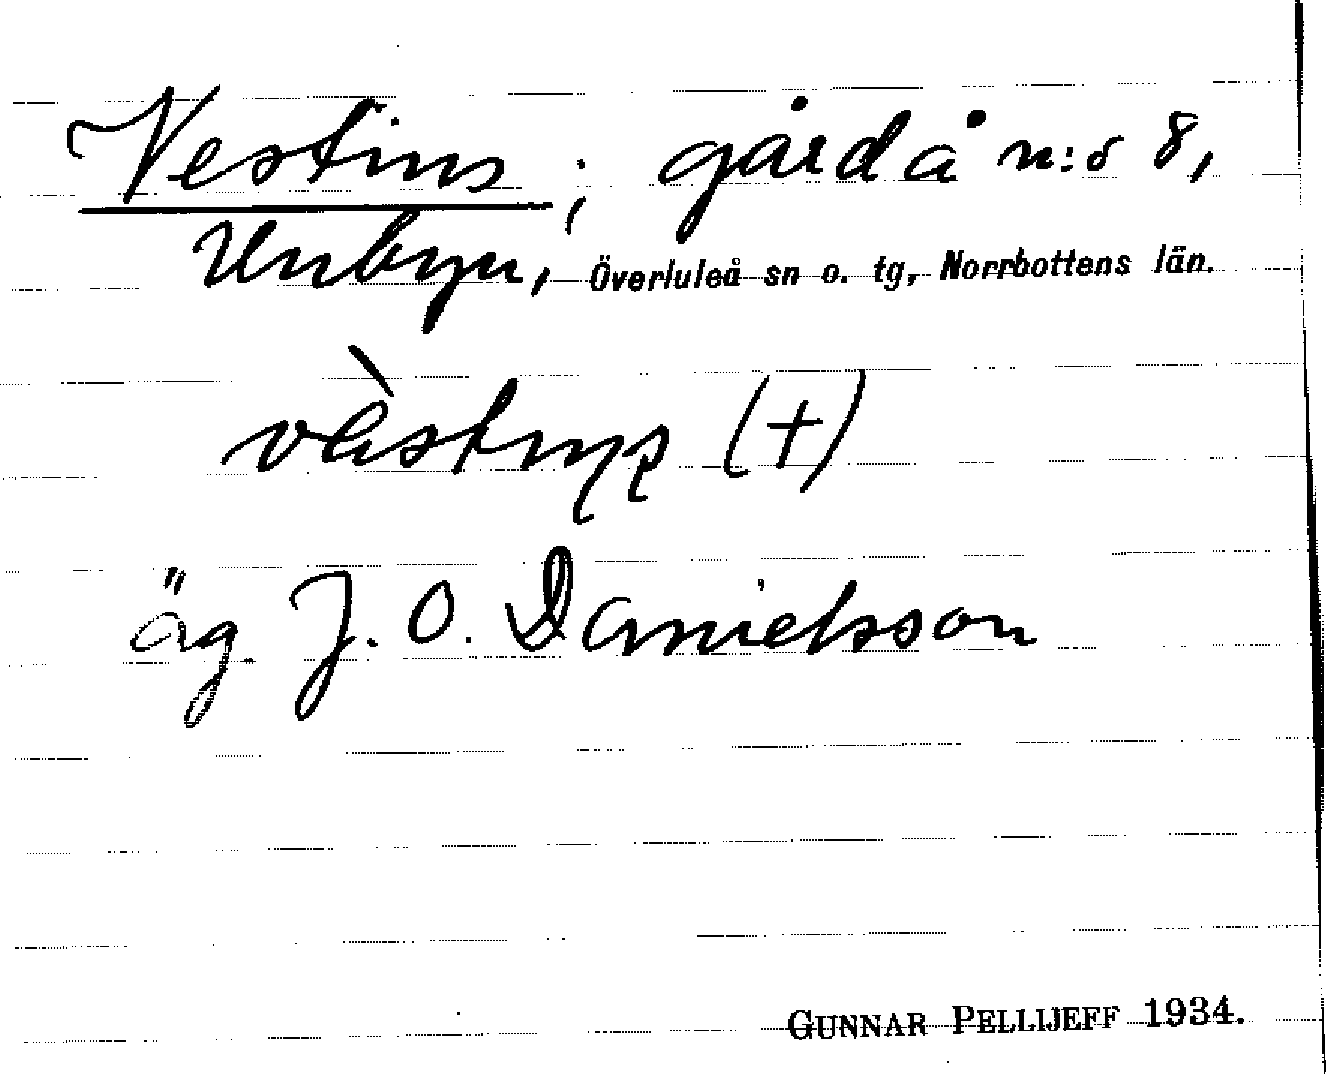 Vestins; gård å n:o 8,
Unbyn, Överluleå sn o. tg, Norrbottens län.
(+)
äg. J. O. Danielsson
GUNNAR PELLIJEFF 1934.